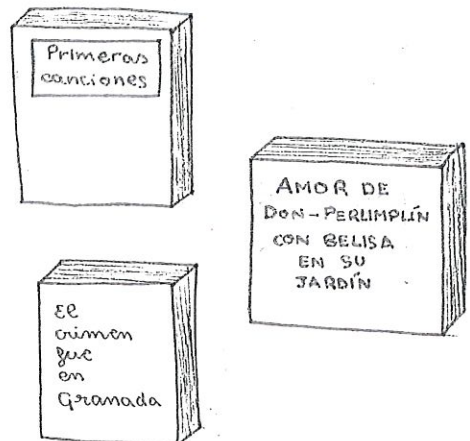 Primeras
canciones
AMOR DE
DON-PERLIMPLÍN
CON BELISA
EN SU
JARDÍN
El
crimen
fue
en
Granada